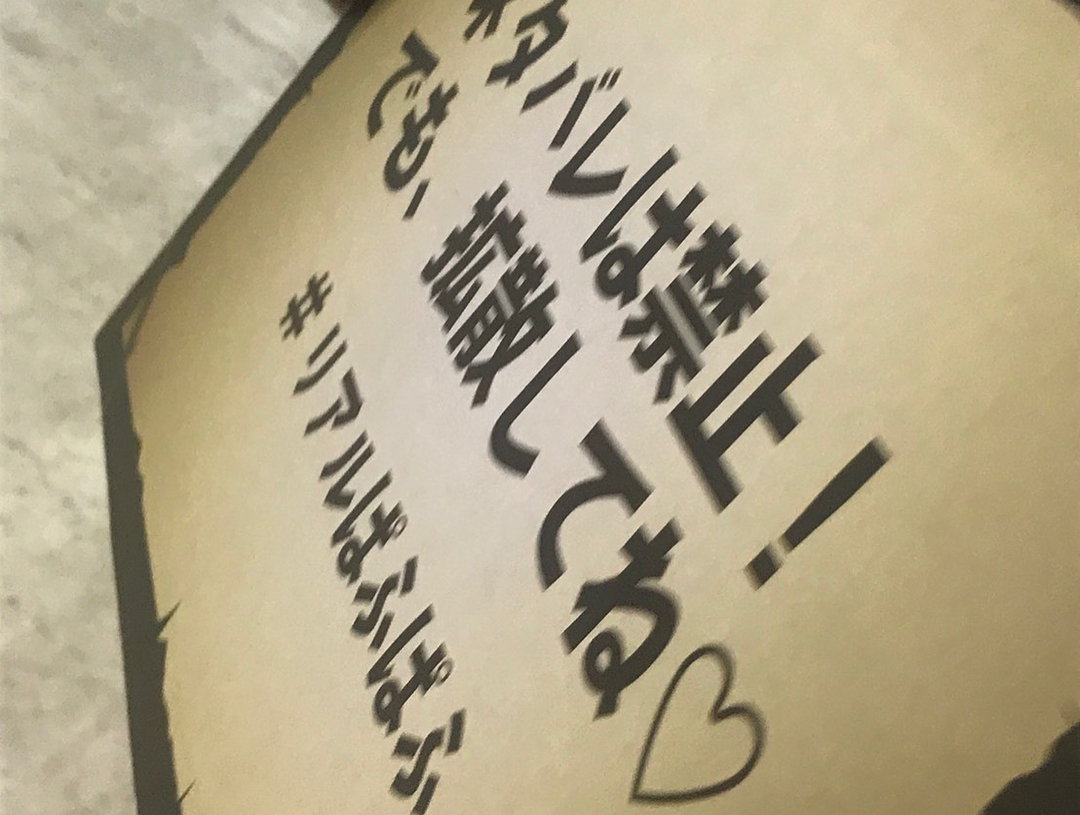 ネタバレは禁止！
でも、
拡散してね♡
#リアルぱふぱふ